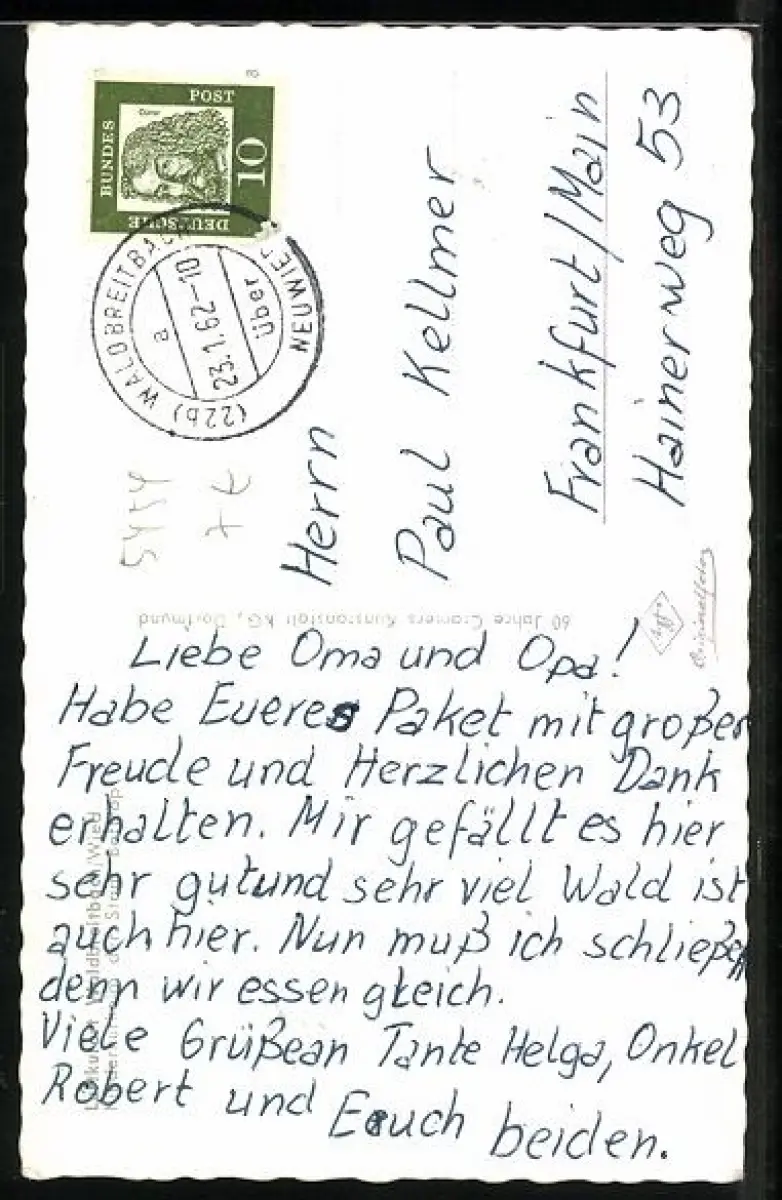 BUNDES
POST
DEUTSCHE
10
Dürer
(22b) WALDBREITBACH
über NEUWIED
23.1.62-10
a
Herrn
Paul Kellmer
Frankfurt/Main
Hainerweg 53
5454
60 Jahre Cramers Kunstanstalt KG, Dortmund
Agfa
Originalfoto
Liebe Oma und Opa!
Habe Eueres Paket mit großer
Freude und Herzlichen Dank
erhalten. Mir gefällt es hier
sehr gut und sehr viel Wald ist
auch hier. Nun muß ich schließen
denn wir essen gleich.
Viele Grüße an Tante Helga, Onkel
Robert und Euch beiden.